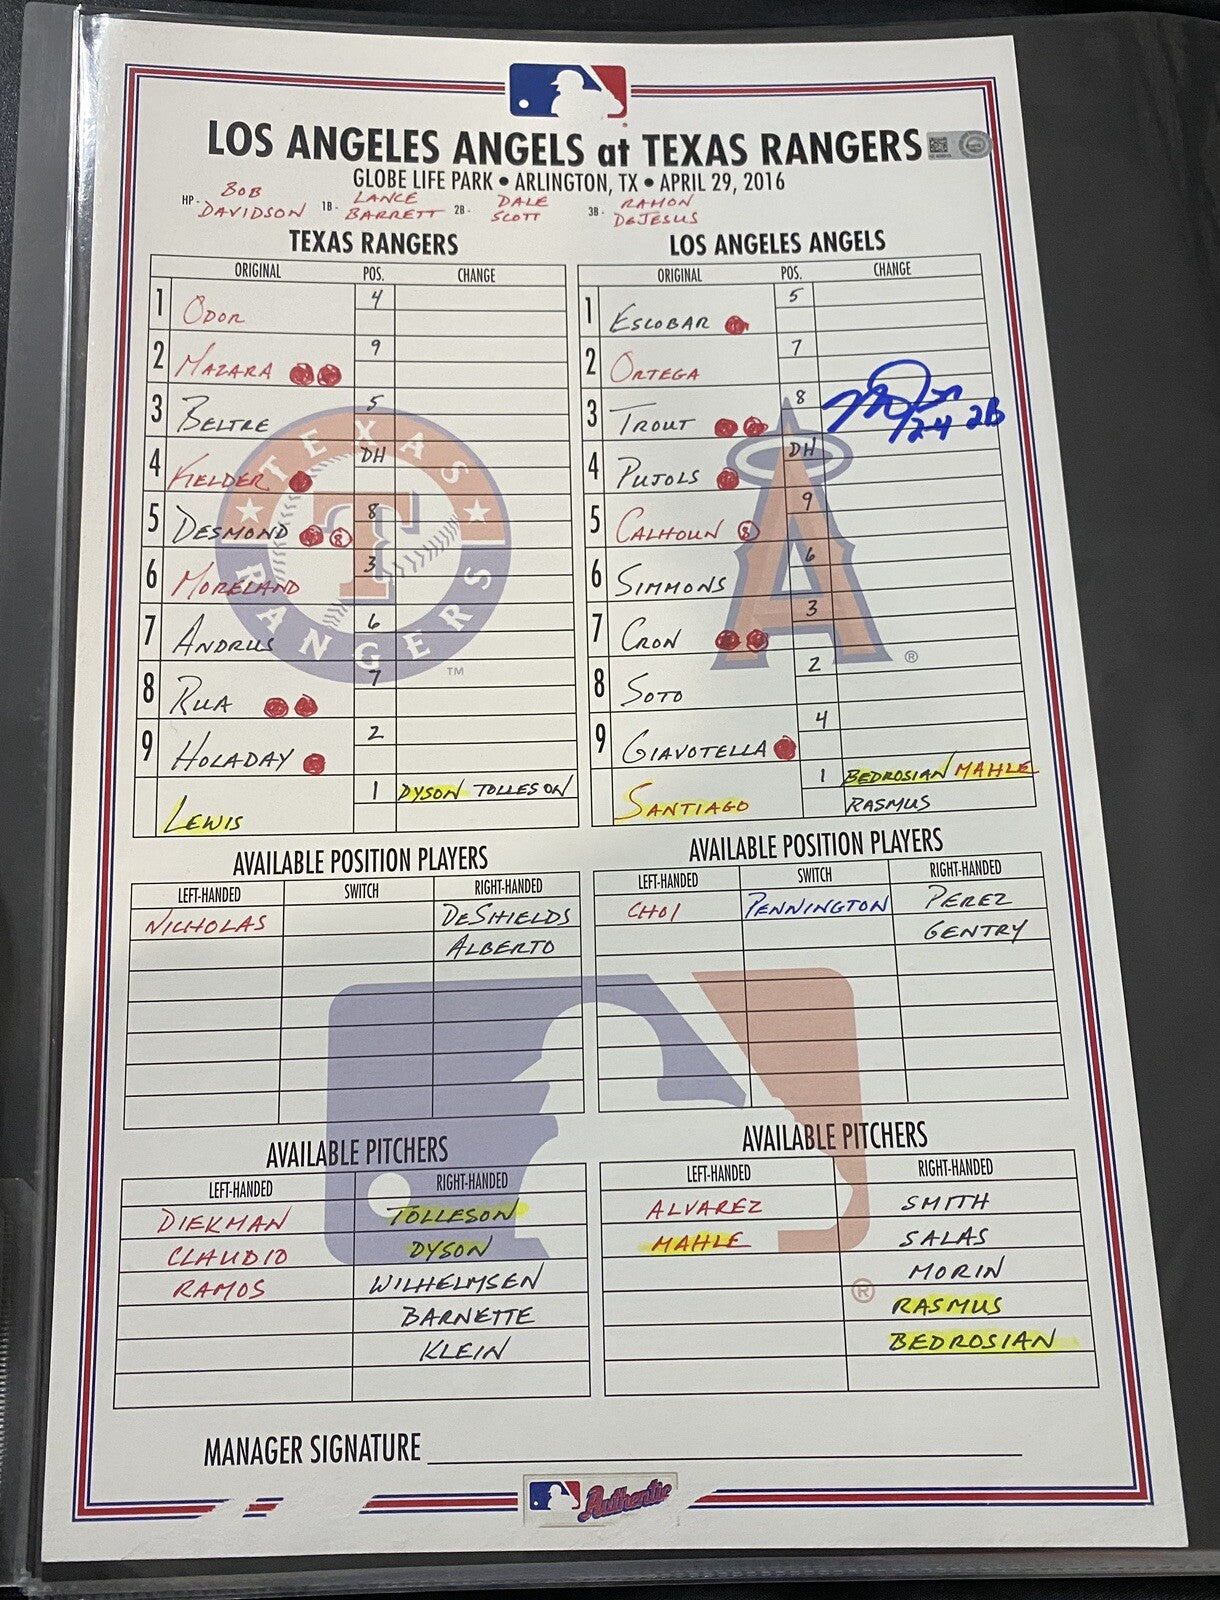 LOS ANGELES ANGELS at TEXAS RANGERS
GLOBE LIFE PARK • ARLINGTON, TX • APRIL 29, 2016
HP- BOB DAVIDSON 1B- LANCE BARRETT 2B- DALE SCOTT 3B- RAMON DeJESUS
TEXAS RANGERS
ORIGINAL POS. CHANGE
1 ODOR 4
2 MAZARA 9
3 BELTRE 5
4 FIELDER DH
5 DESMOND 8 8
6 MORELAND 3
7 ANDRUS 6
8 RUA 7
9 HOLADAY 2
LEWIS 1 DYSON TOLLESON
TEXAS RANGERS
T
TM
LOS ANGELES ANGELS
ORIGINAL POS. CHANGE
1 ESCOBAR 5
2 ORTEGA 7
3 TROUT 8
2-4 2B
4 PUJOLS DH
5 CALHOUN 8 9
6 SIMMONS 6
7 CRON 3
8 SOTO 2
9 GIAVOTELLA 4
SANTIAGO 1 BEDROSIAN MAHLE
RASMUS
A
®
AVAILABLE POSITION PLAYERS
LEFT-HANDED SWITCH RIGHT-HANDED
NICHOLAS DeSHIELDS
ALBERTO
AVAILABLE POSITION PLAYERS
LEFT-HANDED SWITCH RIGHT-HANDED
CHOI PENNINGTON PEREZ
GENTRY
AVAILABLE PITCHERS
LEFT-HANDED RIGHT-HANDED
DIEKMAN TOLLESON
CLAUDIO DYSON
RAMOS WILHELMSEN
BARNETTE
KLEIN
AVAILABLE PITCHERS
LEFT-HANDED RIGHT-HANDED
ALVAREZ SMITH
MAHLE SALAS
MORIN
RASMUS
BEDROSIAN
®
MANAGER SIGNATURE
Authentic